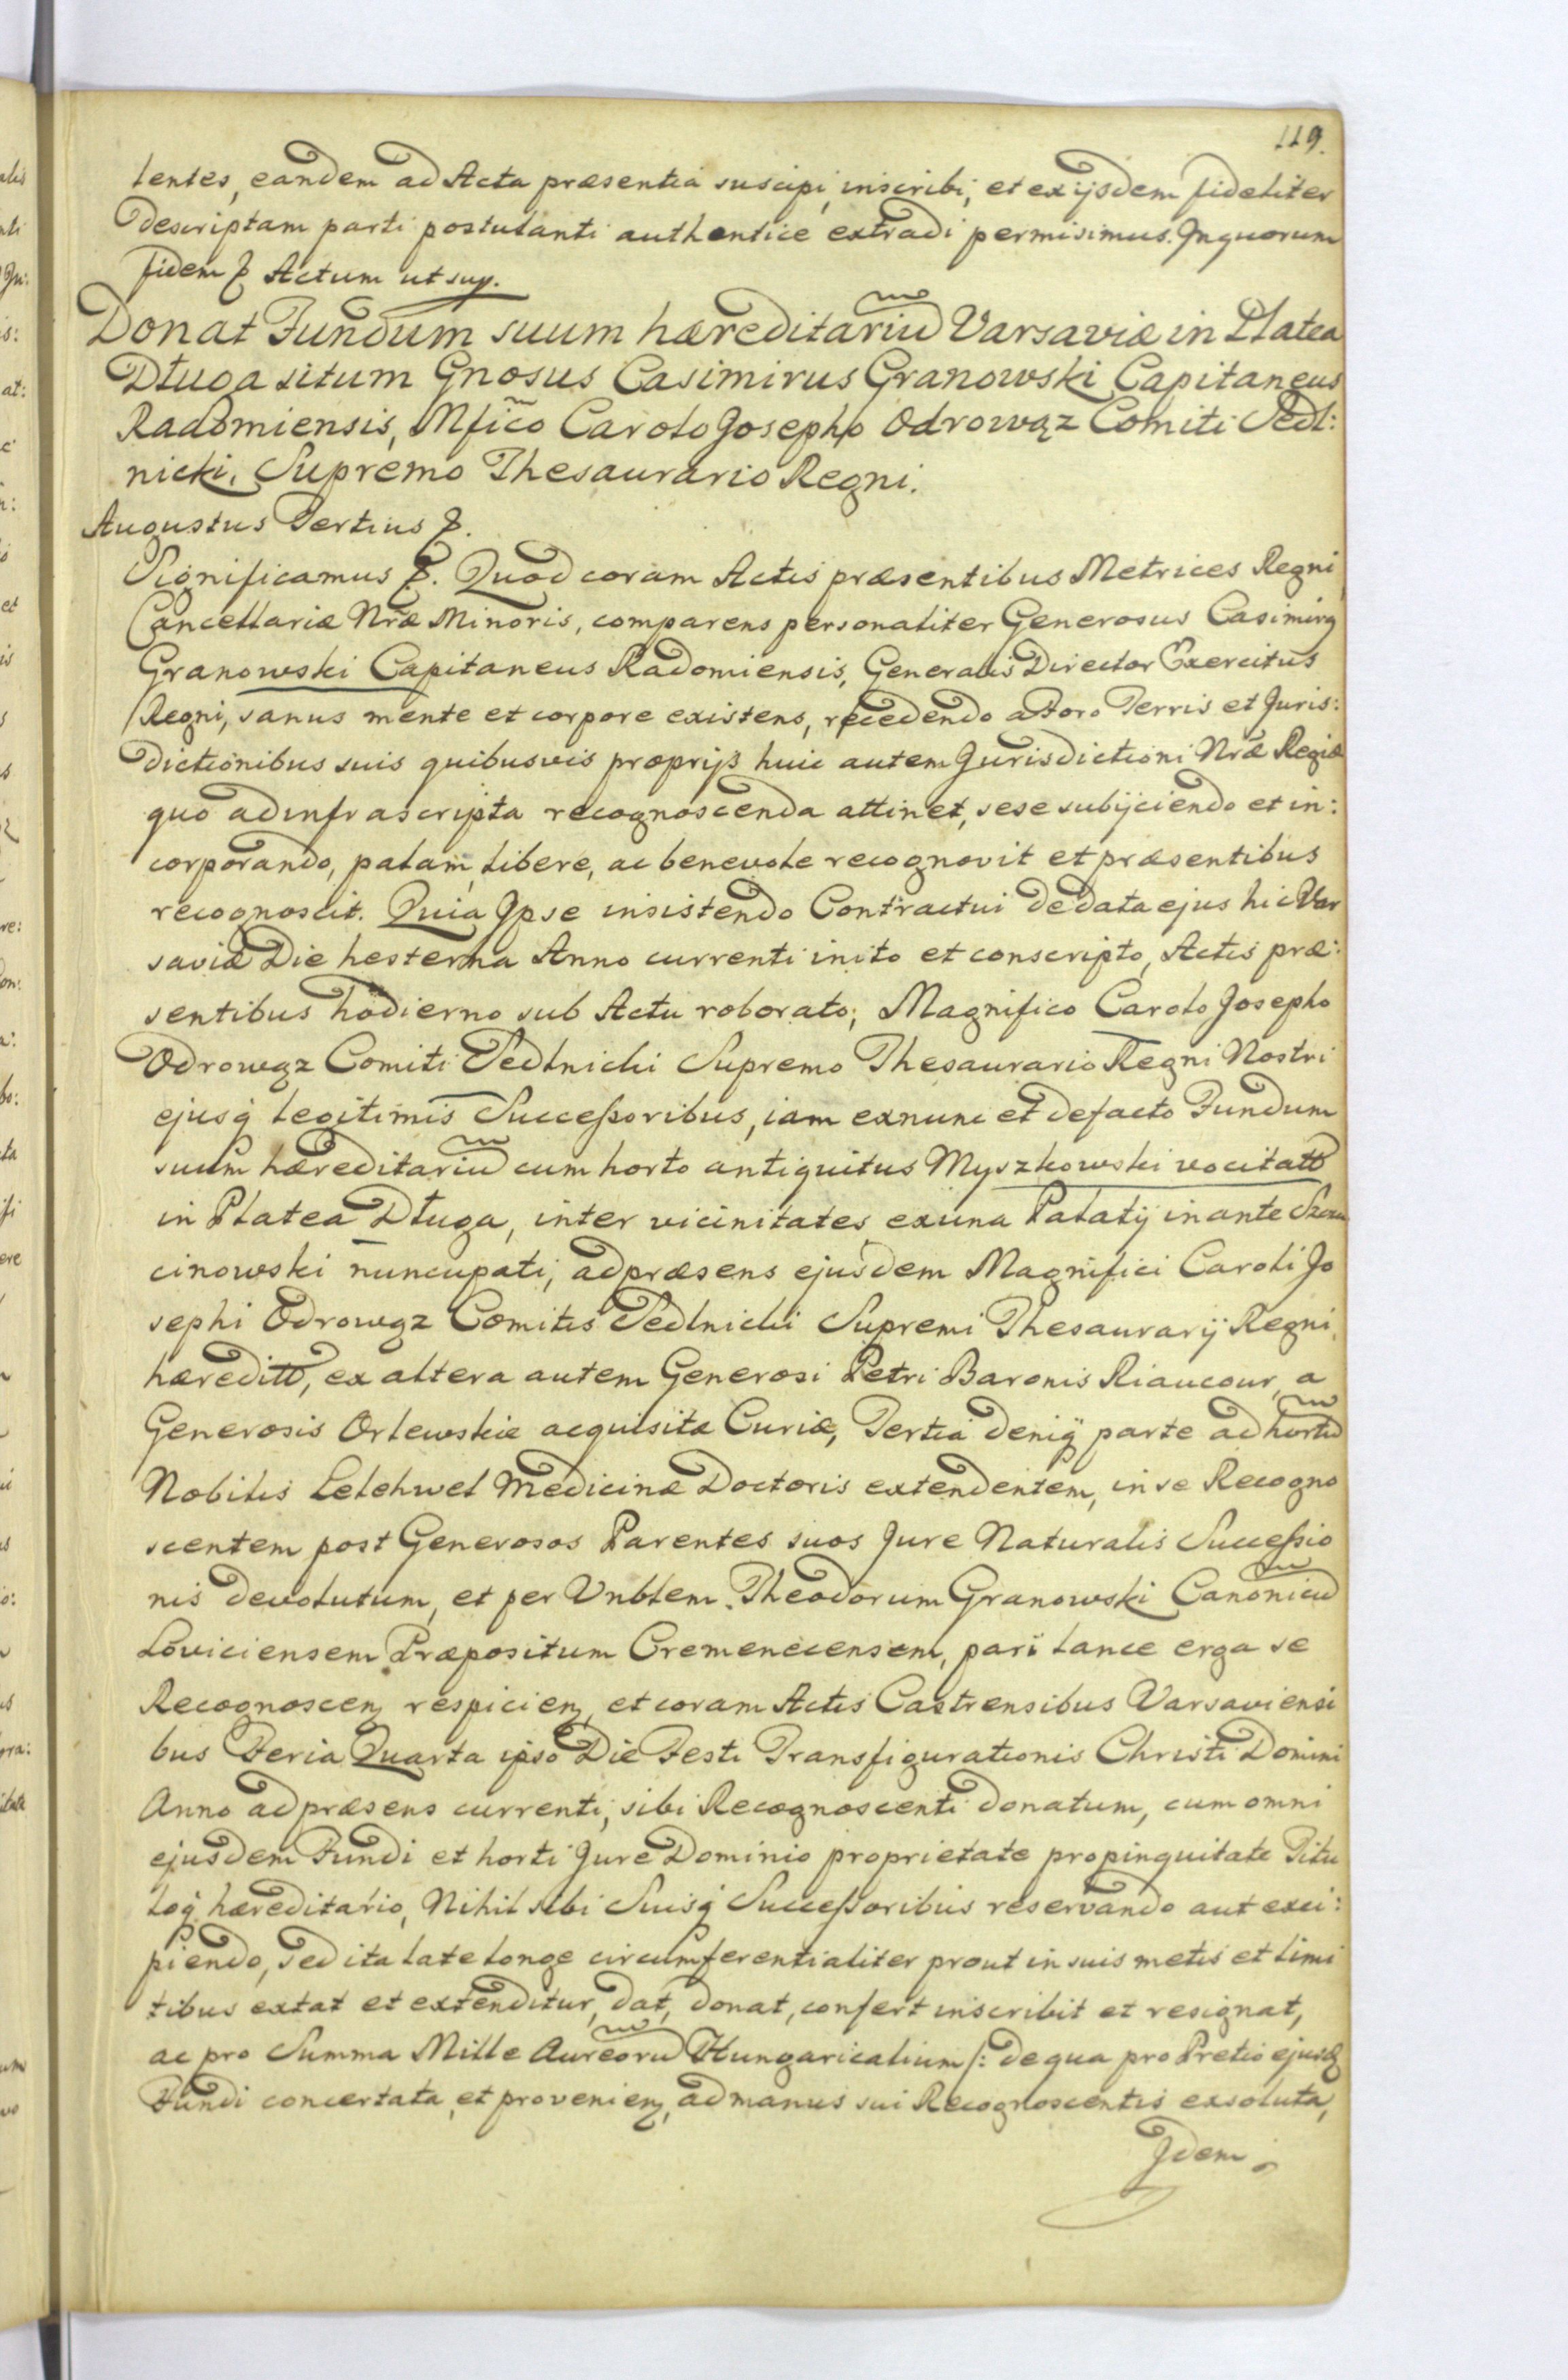 119.
tentes, eandem ad Acta præsentia suscipi, inscribi, et ex ijsdem fideliter
descriptam parti postulanti authentice extradi permisimus. In quorum
fidem &. Actum ut sup.
Donat Fundum suum hæreditariũ Varsaviæ in Platea
Długa situm Gnosus Casimirus Granowski Capitaneus
Radomiensis, Mfico Carolo Josepho Odrowąż Comiti Sedl:
nicki, Supremo Thesaurario Regni.
Augustus Tertius &.
Significamus &. Quod coram Actis præsentibus Metrices Regni
Cancellariæ Nræ Minoris, comparens personaliter Generosus Casimirq
Granowski Capitaneus Radomiensis, Generalis Director Exercitus
Regni, sanus mente et corpore existens, recedendo a Foro Terris et Juris:
dictionibus suis quibusvis proprijs huic autem Jurisdictioni Nræ Regiæ
quo ad infrascripta recognoscenda attinet, sese subijciendo et in:
corporando, palam, libere, ac benevole recognovit et præsentibus
recognoscit. Quia Ipse insistendo Contractui de data ejus hic Var
saviæ Die hesterna Anno currenti inito et conscripto, Actis præ:
sentibus hodierno sub Actu roborato; Magnifico Carolo Josepho
Odrowąz Comiti Sedlnicki Supremo Thesaurario Regni Nostri
ejusq̃ legitimis Successoribus, iam exnunc et defacto Fundum
suum hæreditariũ cum horto antiquitus Myszkowski vocitatt
in Platea Długa, inter vicinitates, ex una Palatij in ante Szczu
cinowski nuncupati, ad præsens ejusdem Magnifici Caroli Jo
sephi Odrowąz Comitis Sedlnicki Supremi Thesaurarij Regni,
hæreditt, ex altera autem Generosi Petri Baronis Riaucour, a
Generosis Orlewskie acquisitæ Curiæ, Tertia deniq̃ parte ad hortũ
Nobilis Lelehwel Medicinæ Doctoris extendentem, in se Recogno
scentem post Generosos Parentes suos Jure Naturalis Successio
nis devolutum, et per Vnblem Theodorum Granowski Canonicũ
Loviciensem Præpositum Cremenecensem, pari lance erga se
Recognoscen, respicien, et coram Actis Castrensibus Varsaviensi
bus Feria Quarta ipso Die Festi Transfigurationis Christi Domini
Anno ad præsens currenti, sibi Recognoscenti donatum, cum omni
ejusdem Fundi et horti Jure Dominio proprietate propinquitate Titu
loq̃ hæreditario, Nihil sibi Suisq̃ Successoribus reservando aut exci:
piendo, sed ita late longe circumferentialiter prout in suis metis et limi
tibus extat et extenditur, dat, donat, confert inscribit et resignat,
ac pro Summa Mille Aureorũ Hungaricalium /: de qua pro Pretio ejusd
Fundi concertata, et provenien, ad manus sui Recognoscentis exsoluta,
Idem